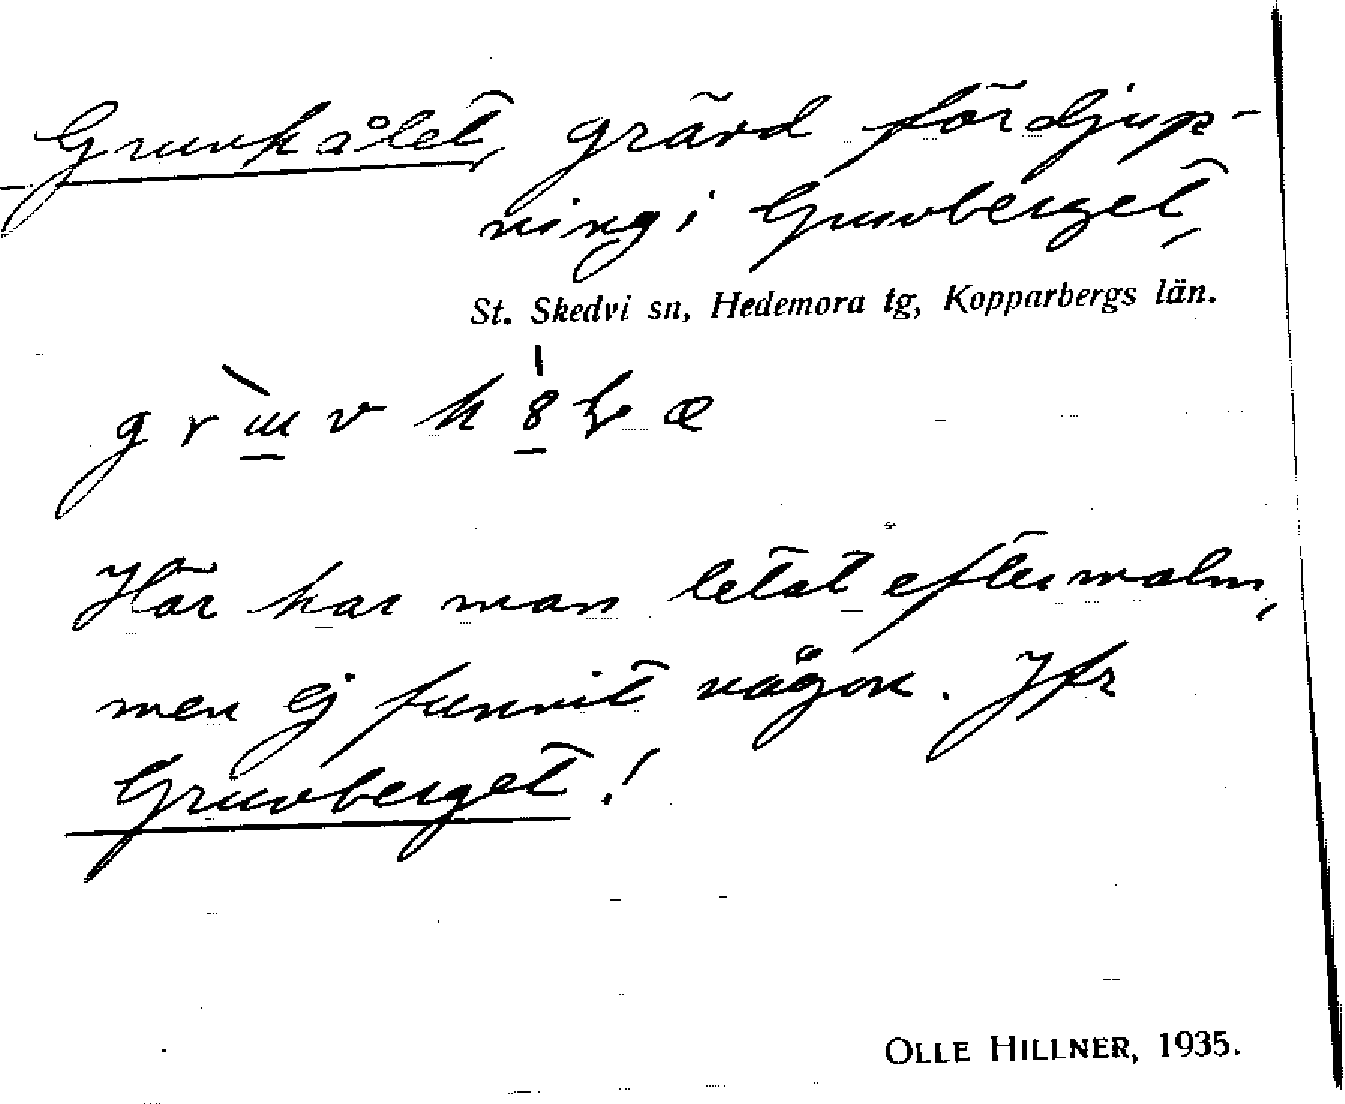 Gruvhålet, grävd fördjup-
ning i Gruvberget,
St. Skedvi sn, Hedemora tg, Kopparbergs län.
Här har man letat efter malm,
men ej funnit någon. Jfr
Gruvberget!
OLLE HILLNER, 1935.